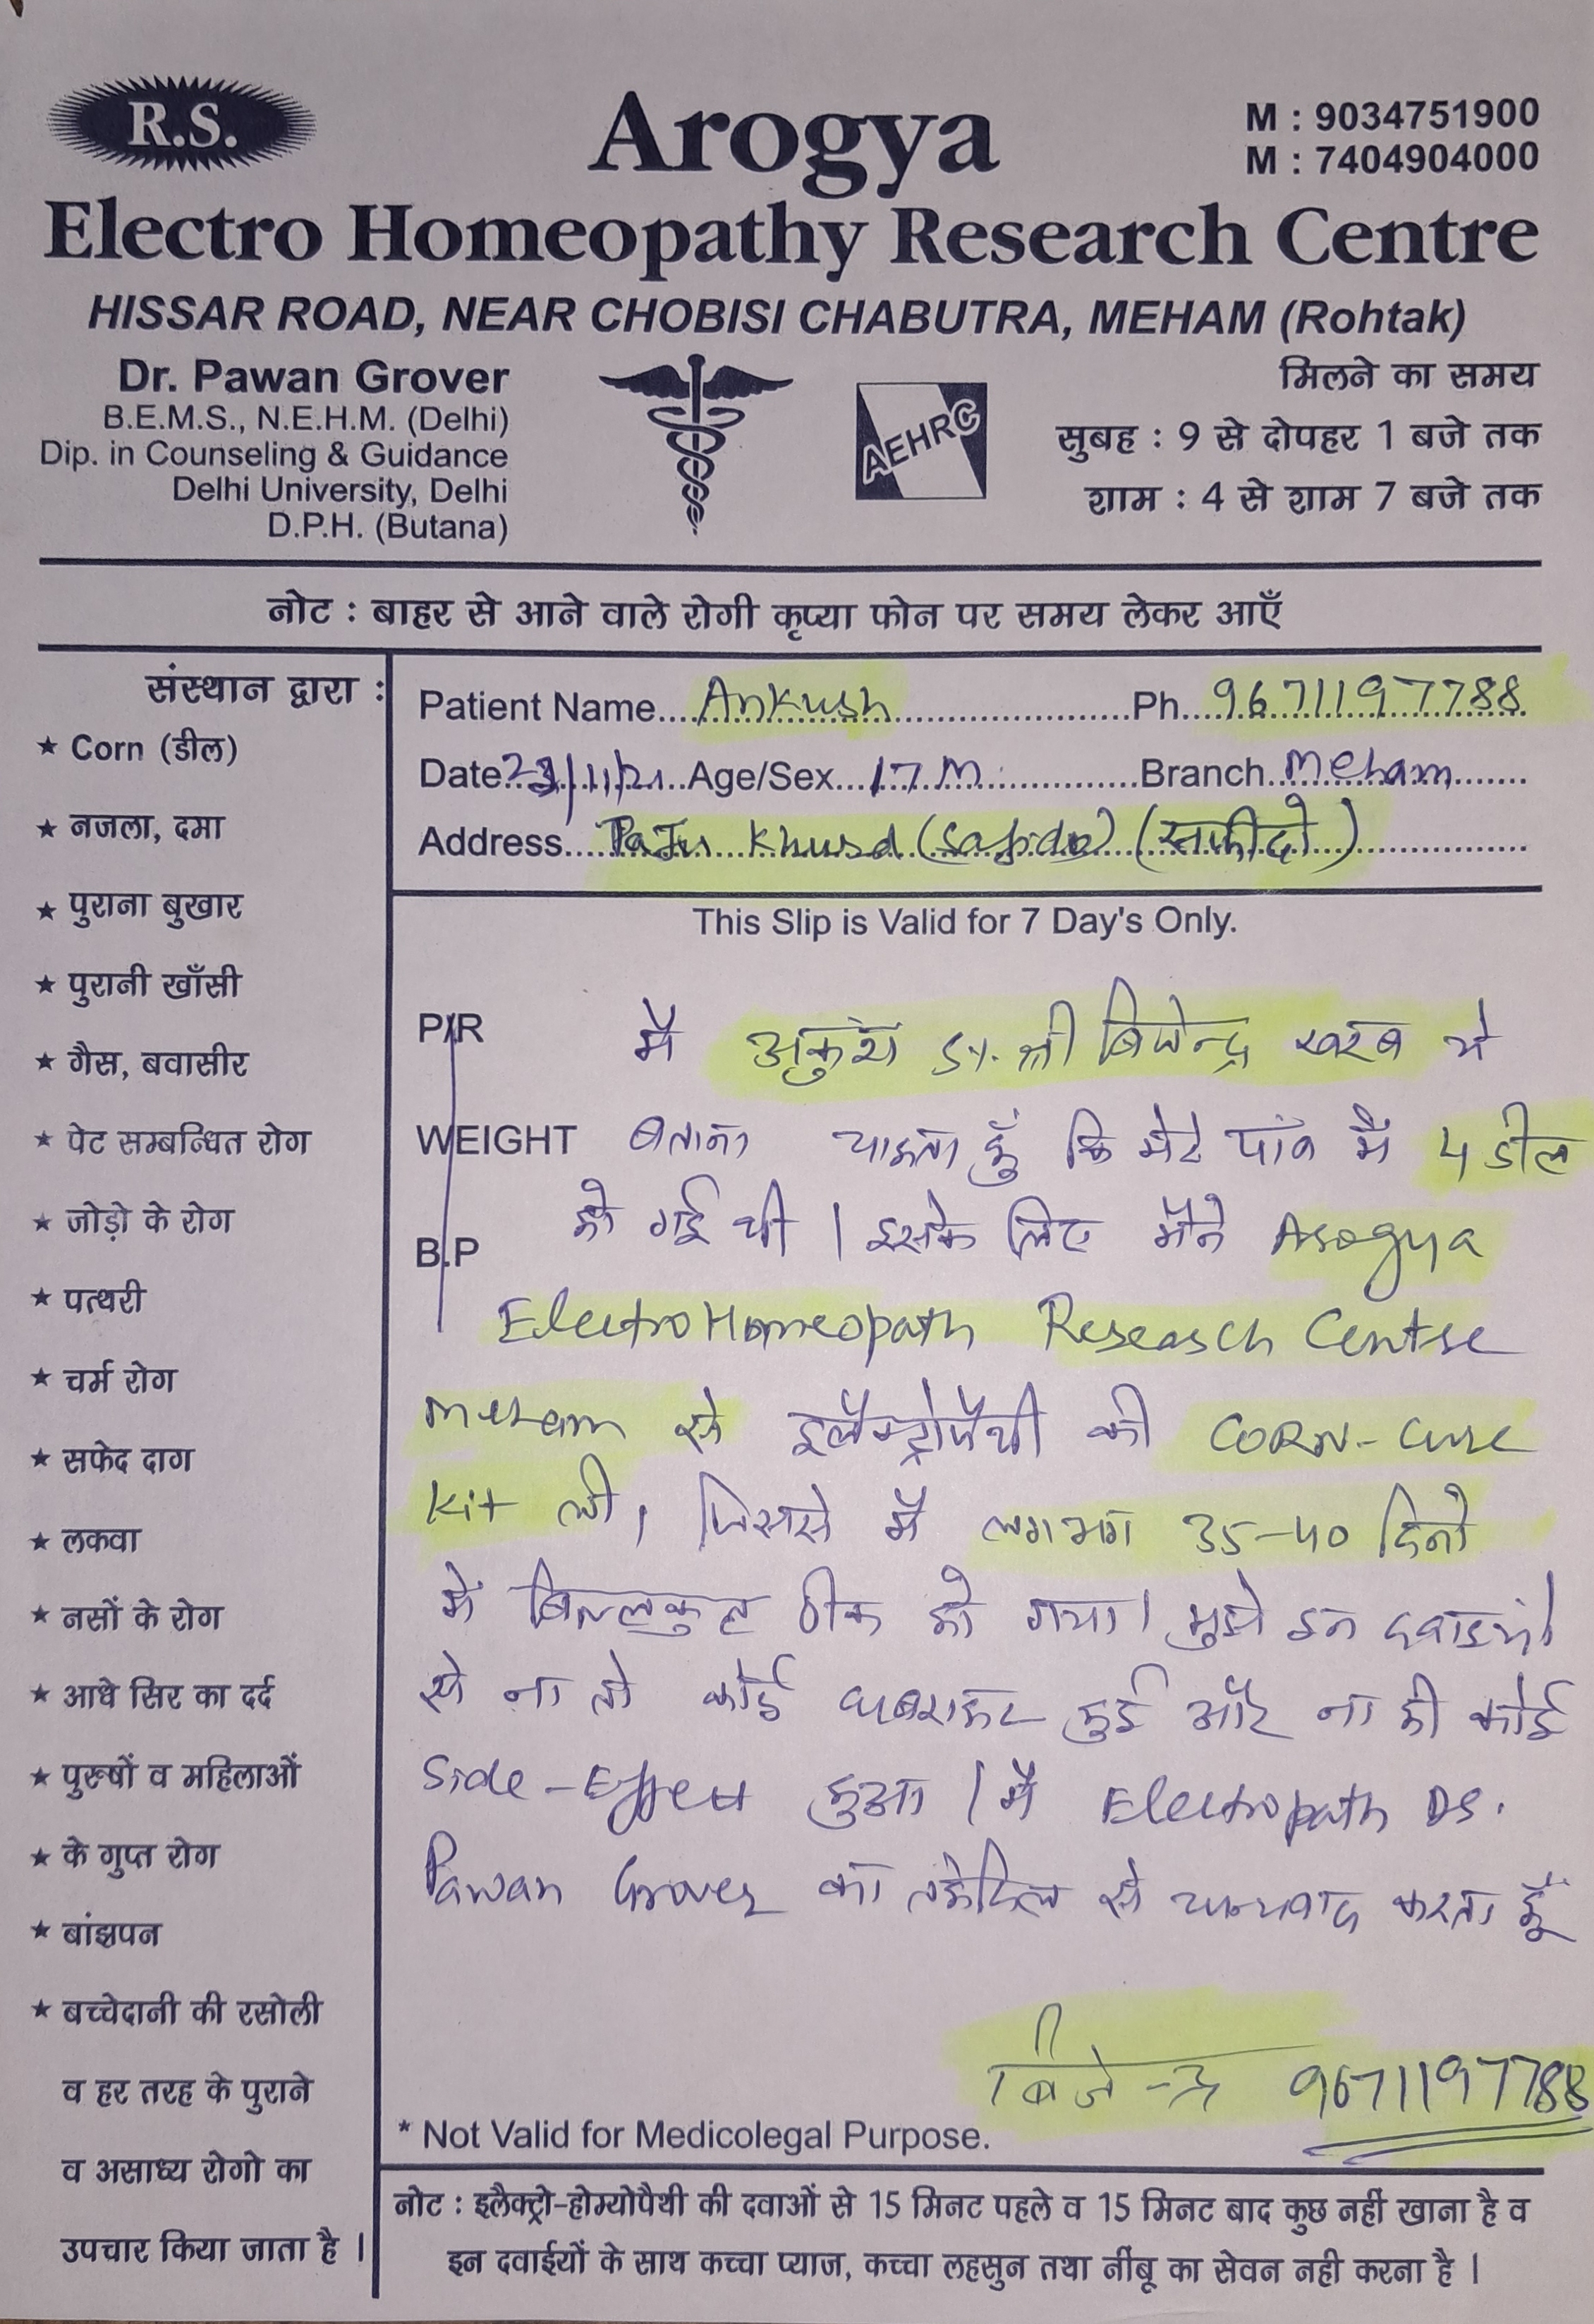 R.S.
Arogya
M : 9034751900
M : 7404904000
Electro Homeopathy Research Centre
HISSAR ROAD, NEAR CHOBISI CHABUTRA, MEHAM (Rohtak)
Dr. Pawan Grover
B.E.M.S., N.E.H.M. (Delhi)
Dip. in Counseling & Guidance
Delhi University, Delhi
D.P.H. (Butana)
AEHRC
मिलने का समय
सुबह : 9 से दोपहर 1 बजे तक
शाम : 4 से शाम 7 बजे तक
नोट : बाहर से आने वाले रोगी कृप्या फोन पर समय लेकर आएँ
संस्थान द्वारा :
★ Corn (डील)
★ नजला, दमा
★ पुराना बुखार
★ पुरानी खाँसी
★ गैस, बवासीर
★ पेट सम्बन्धित रोग
★ जोड़ो के रोग
★ पत्थरी
★ चर्म रोग
★ सफेद दाग
★ लकवा
★ नसों के रोग
★ आधे सिर का दर्द
★ पुरूषों व महिलाओं
★ के गुप्त रोग
★ बांझपन
★ बच्चेदानी की रसोली
व हर तरह के पुराने
व असाध्य रोगो का
उपचार किया जाता है ।
Patient Name....Ankush....Ph...9671197788
Date...23/11/21...Age/Sex...17 M...Branch...Meham
Address....Paju Khurd (Safido) (सफीदो)
This Slip is Valid for 7 Day's Only.
P/R
WEIGHT
B.P
मै अकुंश S/. श्री बिजेन्द्र खरब ये
बताना चाहता हूँ कि मेरे पांव मै 4 डील
हो गई थी । इसके लिए मैंने Arogya
ElectroHomeopath Research Centre
Meham से इलैक्ट्रोपैथी की CORN-Cure
Kit ली, जिससे मैं लगभग 35-40 दिनो
में बिल्लकुल ठीक हो गया। मुझे इन दवाइयों
से ना तो कोई घबराहट हुई और ना ही कोई
Side-Effect हुआ । मै Electropath Dr.
Pawan Grover का तहेदिल से धन्यवाद करता हूँ
बिजेन्द्र 9671197788
* Not Valid for Medicolegal Purpose.
नोट : इलैक्ट्रो-होम्योपैथी की दवाओं से 15 मिनट पहले व 15 मिनट बाद कुछ नहीं खाना है व
इन दवाईयों के साथ कच्चा प्याज, कच्चा लहसुन तथा नींबू का सेवन नही करना है ।